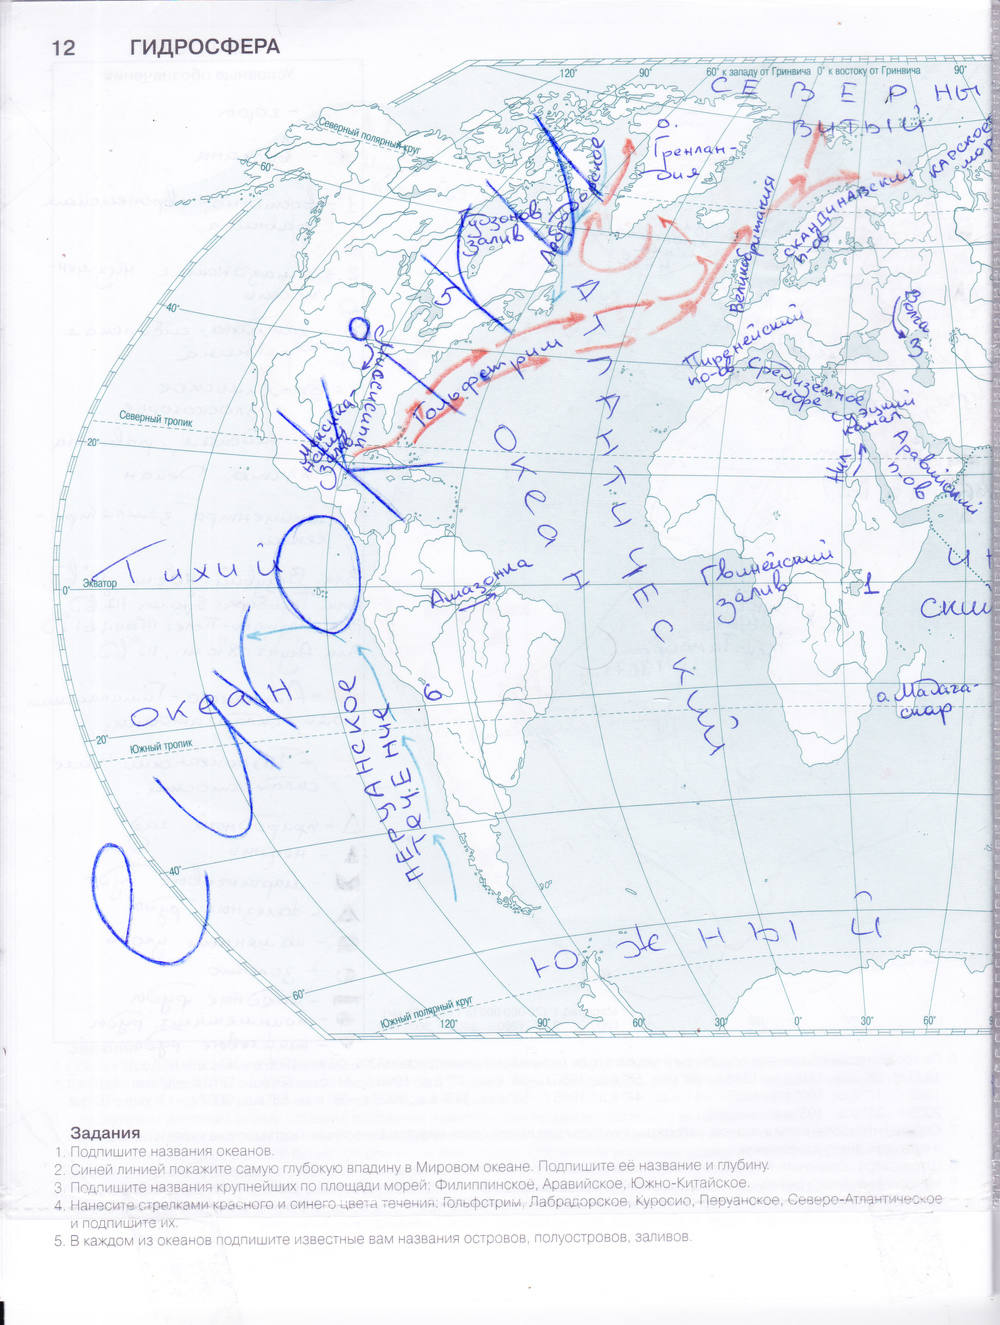 12 ГИДРОСФЕРА
120° 90° 60° к западу от Гринвича 0° к востоку от Гринвича 90°
СЕВЕРНЫ
ВИТЫЙ
КАРСКОЕ
МОРЕ
Северный полярный круг
60°
о.
Гренлан-
дия
Гудзонов
залив
Лабродорское
СКАНДИНАВСКИЙ
п-ов
Великобритания
40°
5
Волга
3
Пиренейский
по-ов.
Средиземное
море
Суэцкий
канал
Миссисипи
Гольфстрим
Северный тропик
20°
Мексикан-
залив
Нил
Аравийский
п-ов
АТЛАНТИЧЕСКИЙ
Океан
Тихий
Экватор
0°
Амазонка
Гвинейский
залив
1
ИН
СКИЙ
океан
6
о. Мадага-
скар
20°
Южный тропик
ПЕРУАНСКОЕ
ТЕЧЕНИЕ
40°
ЮЖНЫЙ
60°
Южный полярный круг
120° 90° 60° 30° 0° 30° 60°
Задания
1. Подпишите названия океанов.
2. Синей линией покажите самую глубокую впадину в Мировом океане. Подпишите её название и глубину.
3 Подпишите названия крупнейших по площади морей: Филиппинское, Аравийское, Южно-Китайское.
4. Нанесите стрелками красного и синего цвета течения: Гольфстрим, Лабрадорское, Куросио, Перуанское, Северо-Атлантическое
и подпишите их.
5. В каждом из океанов подпишите известные вам названия островов, полуостровов, заливов.